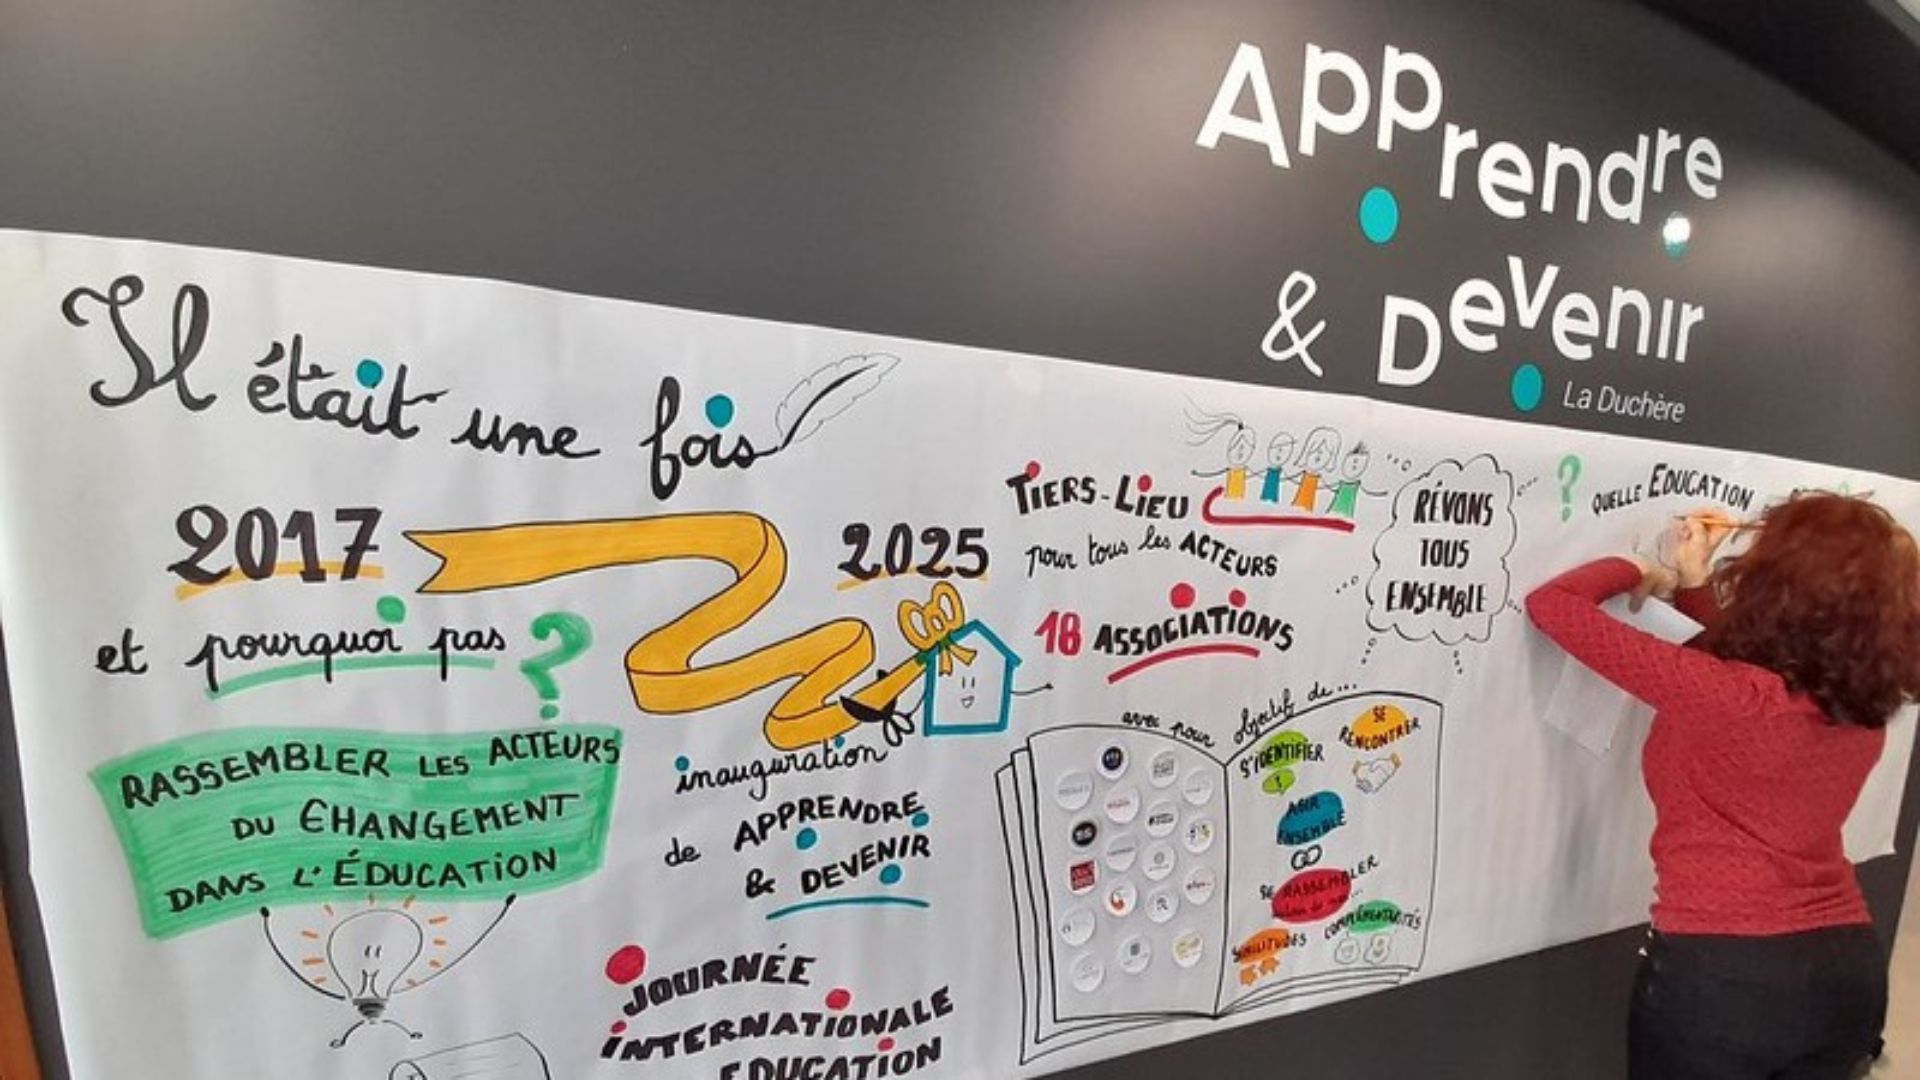 Apprendre
& Devenir
La Duchère
Il était une fois
2017
et pourquoi pas ?
RASSEMBLER LES ACTEURS
DU CHANGEMENT
DANS L'ÉDUCATION
2025
inauguration
de APPRENDRE
& DEVENIR
JOURNÉE
INTERNATIONALE
EDUCATION
TIERS-LIEU
pour tous les ACTEURS
18 ASSOCIATIONS
RÊVONS
TOUS
ENSEMBLE
? QUELLE EDUCATION
avec pour objectif de...
S'IDENTIFIER
SE
RENCONTRER
AGIR
ENSEMBLE
SE RASSEMBLER
SIMILITUDES
COMPLÉMENTARITÉS